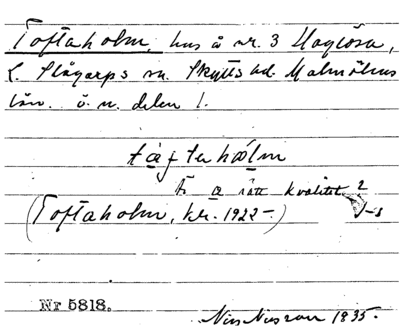 Toftaholm, hus å nr. 3 Haglösa,
L. Slågarps sn. Skytts hd. Malmöhus
län. ö. n. delen 1.
tàftahòlm
Är a rätt kvalitet?
(Toftaholm, kr. 1922–)
Nr 5818.
Nils Nilsson 1835.